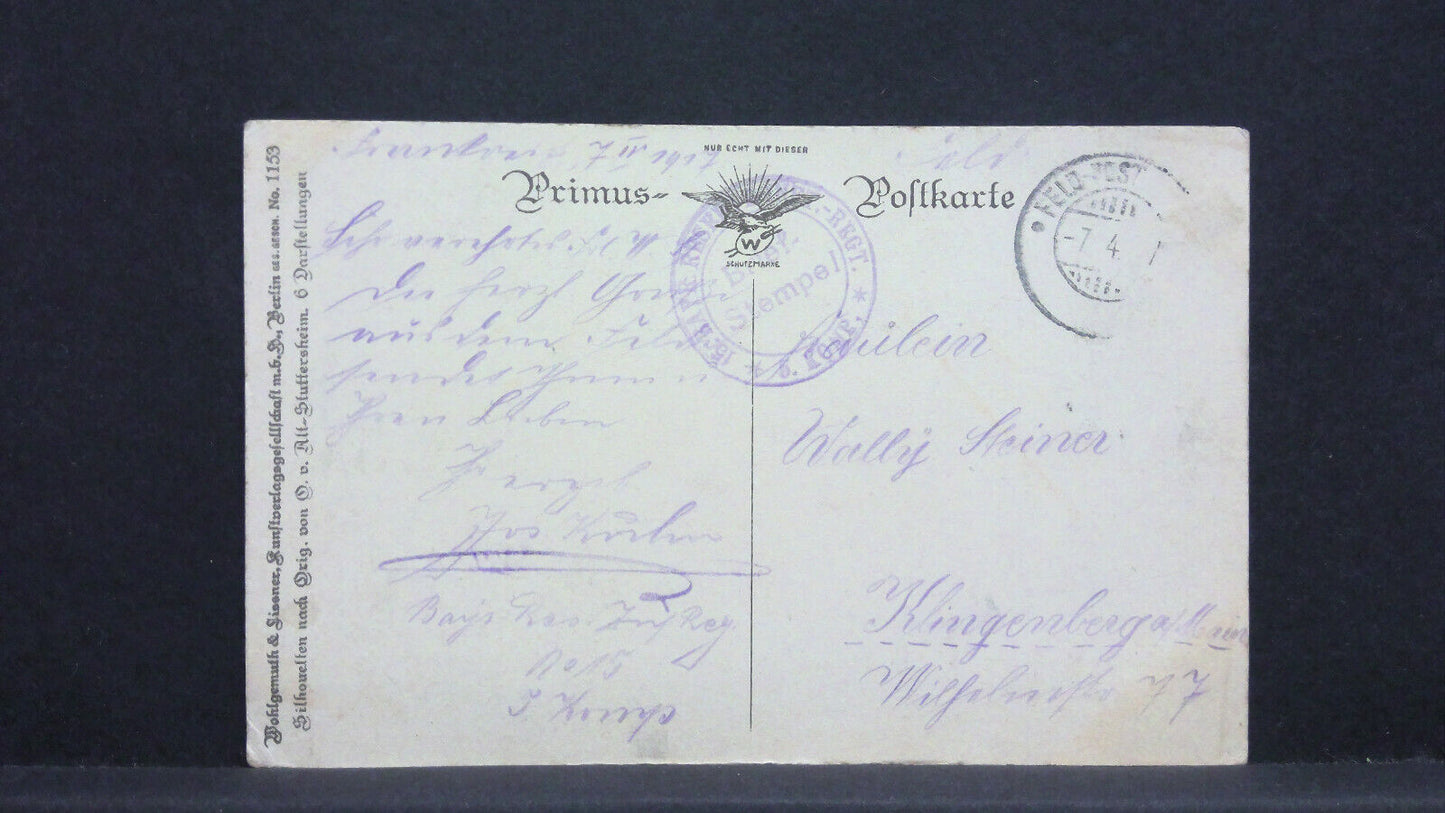 Wohlgemuth & Lissner, Kunstverlagsgesellschaft m.b.H., Berlin GES.GESCH. No. 1153
Silhouetten nach Orig. von O. v. Alt-Stutterheim. 6 Darstellungen
7 IV 1917
NUR ECHT MIT DIESER
Primus- Postkarte
W
SCHUTZMARKE
FELD-POST
-7. 4.
-REGT.
Brief-
Stempel
Sehr
Die herzl Grüße
aus dem Felde
sendet Ihnen u
Ihren Lieben
Jos
Bayr Res. Inf Reg
No 15
Komp
Fräulein
Wally Steiner
Klingenberg a/Main
Wilhelmstr 77